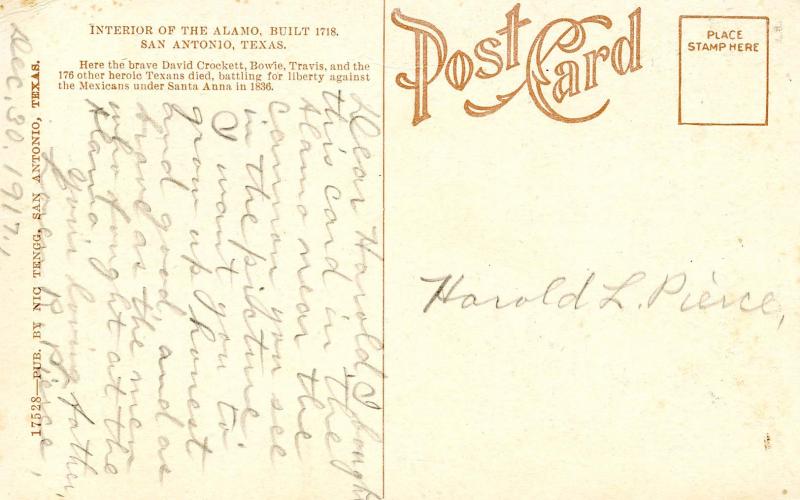 INTERIOR OF THE ALAMO, BUILT 1718.
SAN ANTONIO, TEXAS.
Here the brave David Crockett, Bowie, Travis, and the
176 other heroic Texans died, battling for liberty against
the Mexicans under Santa Anna in 1836.
Post Card
PLACE
STAMP HERE
Dear Harold, I bought
this card in the
Alamo near the
cannon you see
in the picture.
I want you to
grow up honest
and good, and as
brave as the men
who fought at the
Alamo.
Your loving father,
Pierce,
Dec. 30, 1917,
17528—PUB. BY NIC TENGG, SAN ANTONIO, TEXAS.
Harold L. Pierce,